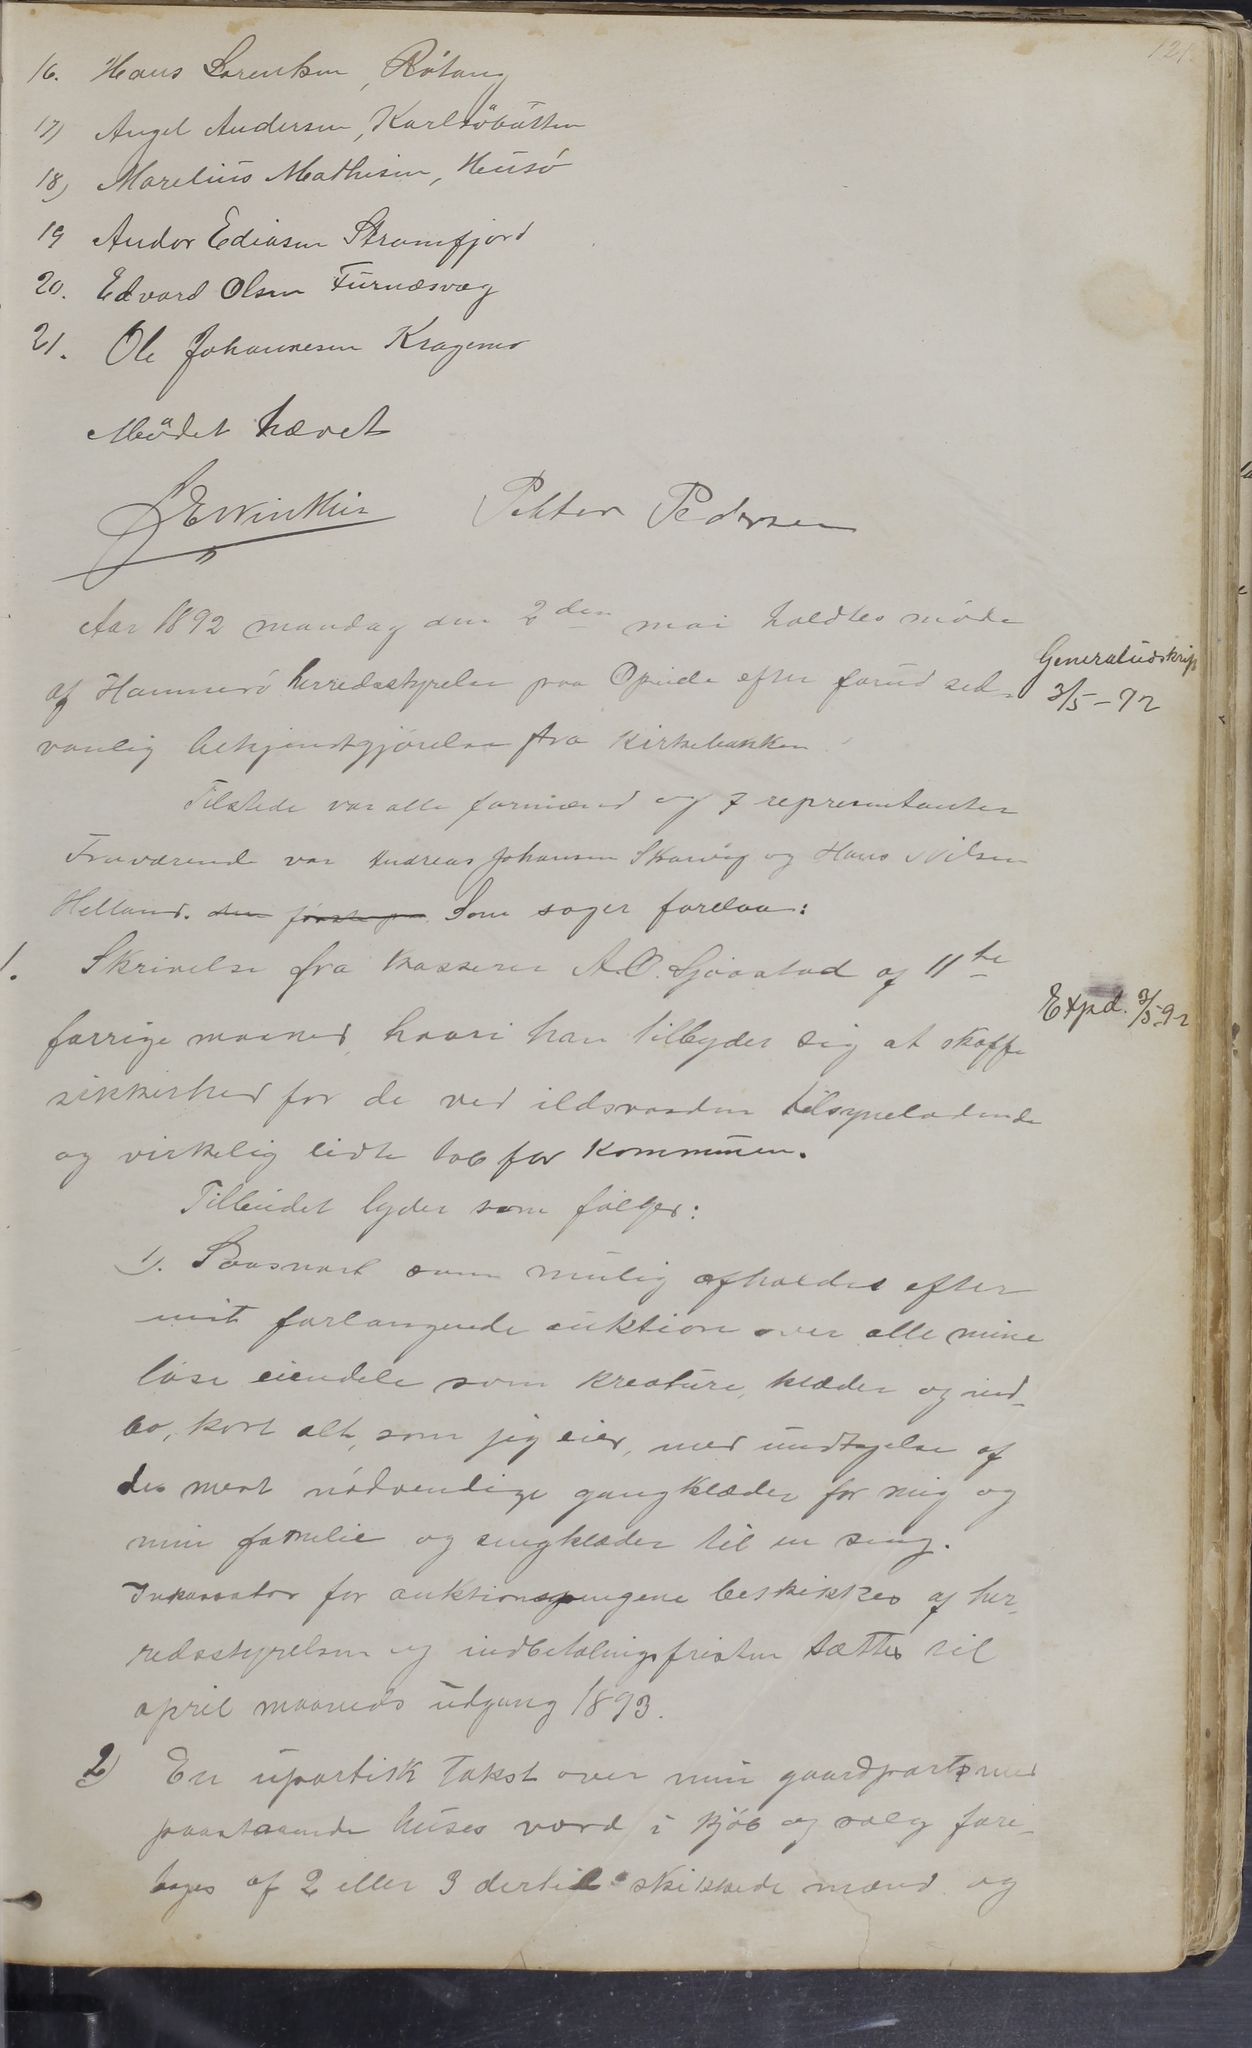 121
16. Hans Lorentsen, Røtang
17) Angel Andersen, Karlsøbøtten
18) Marelius Mathisen, Husø
19 Andor Ediasen Strømfjord
20. Edvard Olsen Furnæsvæg
21. Ole Johannesen Kragemo
Mødet hævet
Petter Pedersen
Aar 1892 mandag den 2den mai holdtes møde
af Hammerø herredsstyrelse paa Opeide efter forud sed-
vanlig bekjendtgjørelse fra kirkebakken.
Generaludskrift
3/5-92
Tilstede var alle formænd og 7 repræsentanter
Fraværende var Andreas Johansen Skarvig og Hans Nilsen
Helland. den første paa Som sager forelaa:
1. Skrivelse fra kasserer A.O. Sjaastad af 11te
Expd. 3/5-92
forrige maaned, hvori han tilbyder sig at skaffe
sikkerhed for de ved ildsvaaden tilsyneladende
og virkelig lidte tab for kommunen.
Tilbudet lyder som følger:
1). Saasnart som mulig afholdes efter
mit forlangende auktion over alle mine
løse eiendele som kreature, klæder og ind-
bo, kort alt, som jeg eier, med undtagelse af
de mest nødvendige gangklæder for mig og
min familie og sengklæder til en seng.
Inkassator for auktionspengene beskikkes af her-
redsstyrelsen og indbetalingsfristen sættes til
april maaneds udgang 1893.
2) En upartisk takst over min gaardpart med
paastaaende huses værd i kjøb og salg fore-
tages af 2 eller 3 dertil skikkede mænd og